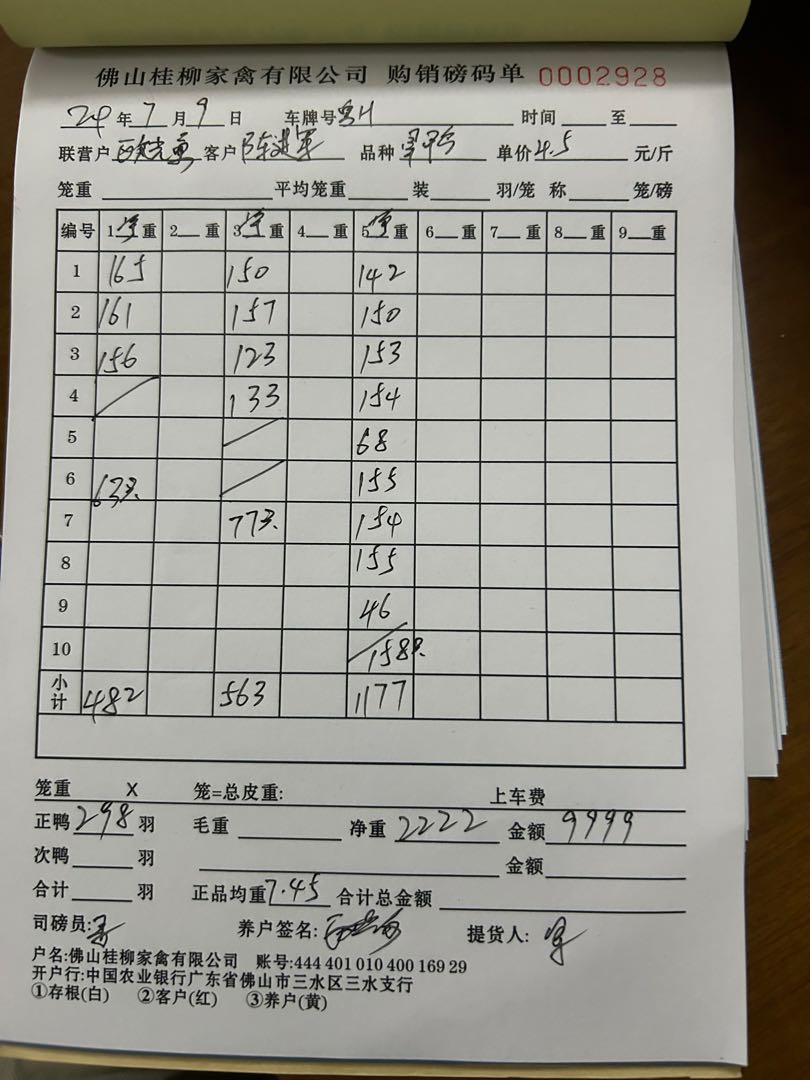 佛山桂柳家禽有限公司 购销磅码单 0002928
24年7月9日 车牌号 时间 至
联营户 客户 陈进军 品种 单价4.5元/斤
笼重 平均笼重 装 羽/笼 称 笼/磅
编号 1净重 2 重 3净重 4 重 5净重 6 重 7 重 8 重 9 重
1 165 150 142
2 161 157 150
3 156 123 153
4 133 154
5 68
6 63只 155
7 77只 154
8 155
9 46
10 158只
小计 482 563 1177
笼重 X 笼=总皮重: 上车费
正鸭298羽 毛重 净重 2222 金额 9999
次鸭 羽 金额
合计 羽 正品均重7.45 合计总金额
司磅员: 养户签名: 提货人:
户名:佛山桂柳家禽有限公司 账号:444 401 010 400 169 29
开户行:中国农业银行广东省佛山市三水区三水支行
①存根(白) ②客户(红) ③养户(黄)